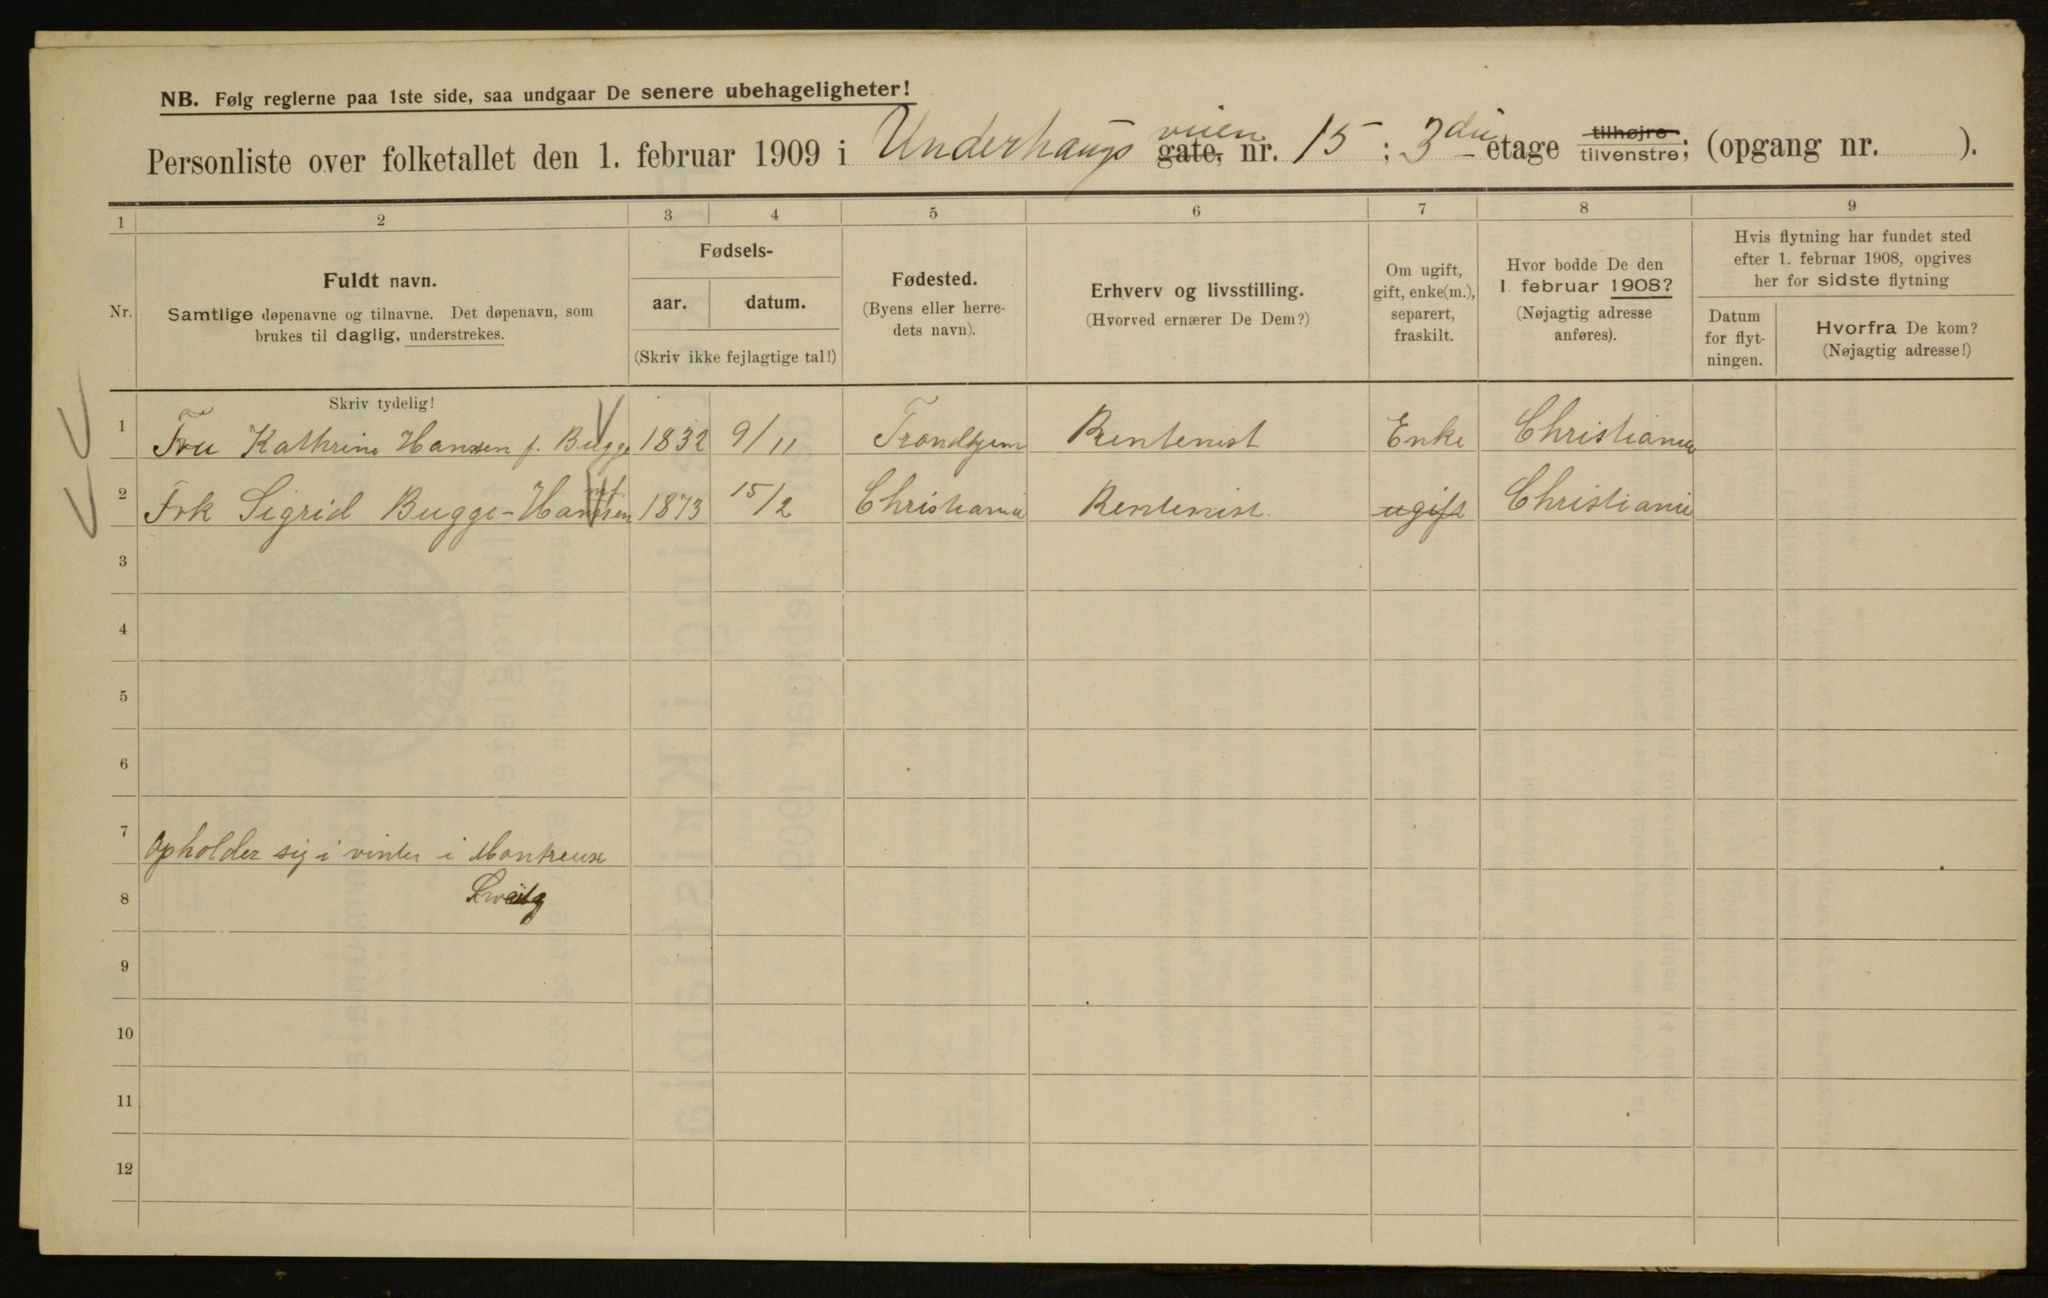 NB. Følg reglerne paa 1ste side, saa undgaar De senere ubehageligheter!
Personliste over folketallet den 1. februar 1909 i Underhaugs veien gate, nr. 15 ; 3die etage tilhøjre tilvenstre; (opgang nr. ).
1 2 3 4 5 6 7 8 9
Nr.
Fuldt navn.
Samtlige døpenavne og tilnavne. Det døpenavn, som
brukes til daglig, understrekes.
Skriv tydelig!
Fødsels-
aar. datum.
(Skriv ikke fejlagtige tal!)
Fødested.
(Byens eller herre-
dets navn).
Erhverv og livsstilling.
(Hvorved ernærer De Dem?)
Om ugift,
gift, enke(m.),
separert,
fraskilt.
Hvor bodde De den
1 februar 1908?
(Nøjagtig adresse
anføres).
Hvis flytning har fundet sted
efter 1. februar 1908, opgives
her for sidste flytning
Datum
for flyt-
ningen.
Hvorfra De kom?
(Nøjagtig adresse!)
1 Fru Kathrine Hansen f. Bugge 1832 9/11 Trondhjem Rentenist Enke Christiania
2 Frk Sigrid Bugge-Hansen 1873 15/2 Christiania Rentenist ugift Christiania
3
4
5
6
7 Opholder sig i vinter i Montreux
8
9
10
11
12